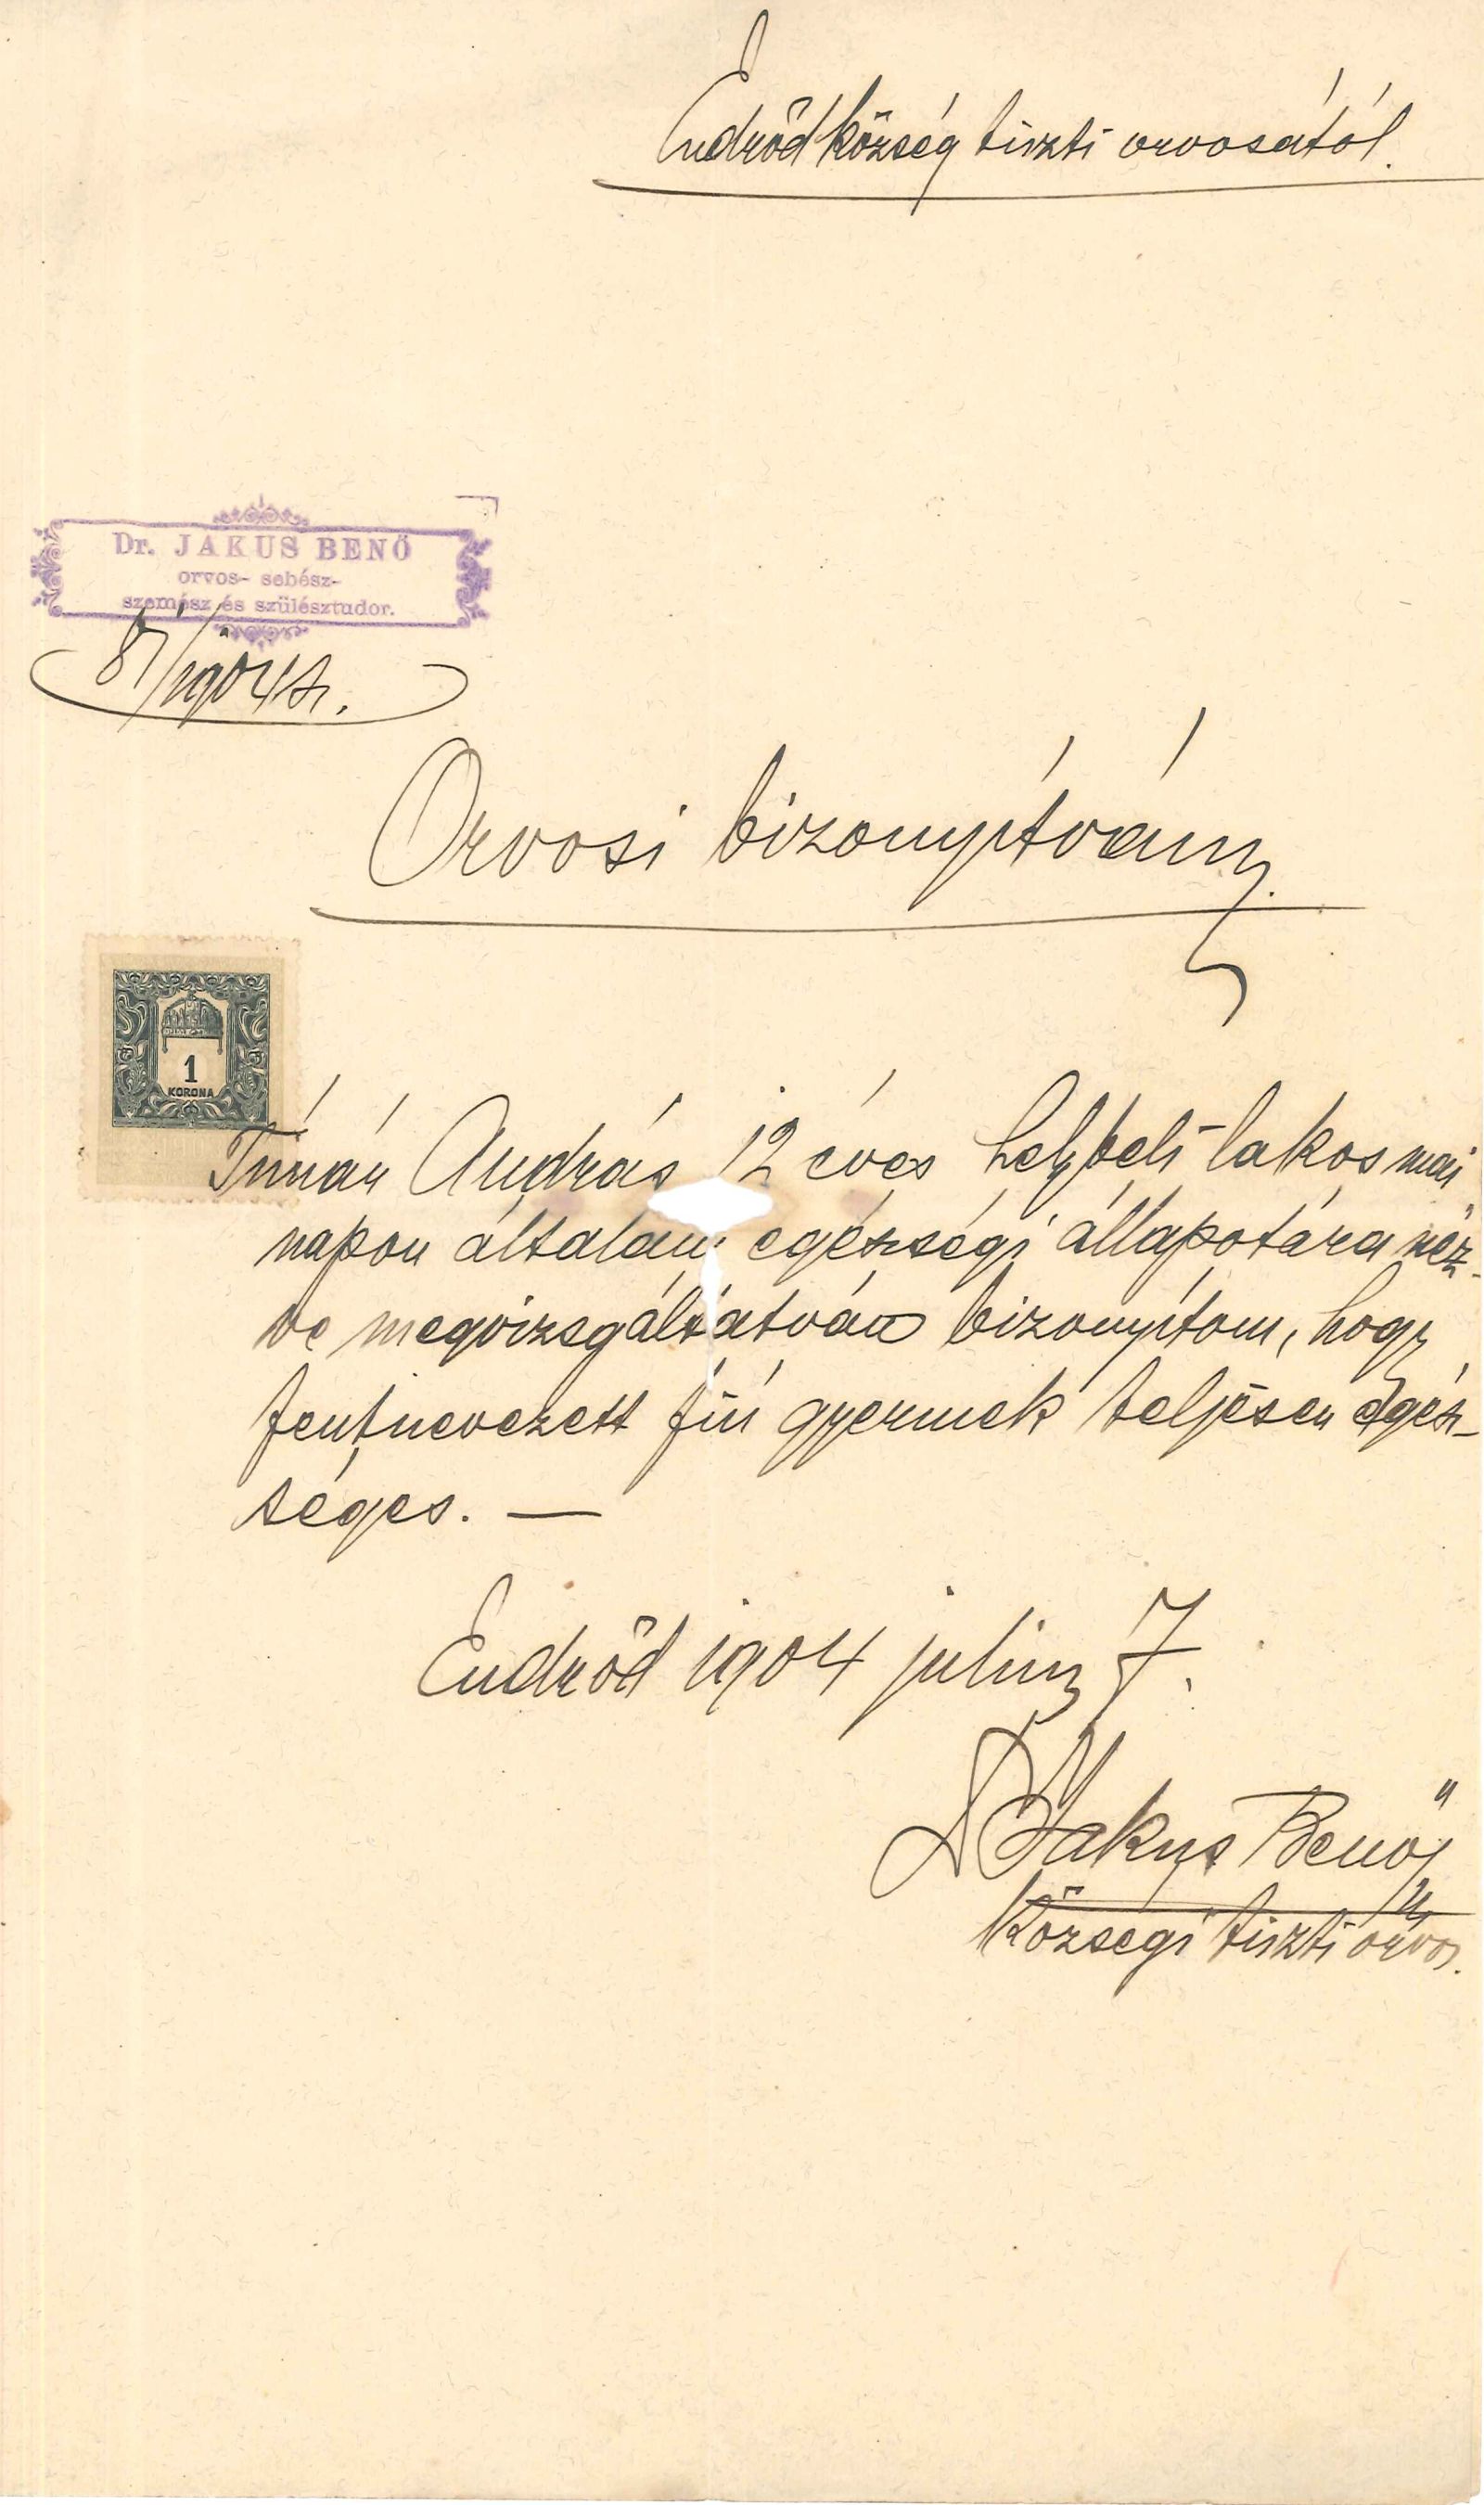 Endrőd község tiszti orvosától.
Dr. JAKUS BENŐ
orvos- sebész-
szemész és szülésztudor.
87/1904 sz.
Orvosi bizonyítvány.
1
KORONA
Tímár András 12 éves helybeli lakos mai
napon általam egészségi állapotára néz-
ve megvizsgáltatván bizonyítom, hogy
fentnevezett fiú gyermek teljesen egész-
séges. —
Endrőd 1904 július 7.
Dr Jakus Benő
községi tiszti orvos.